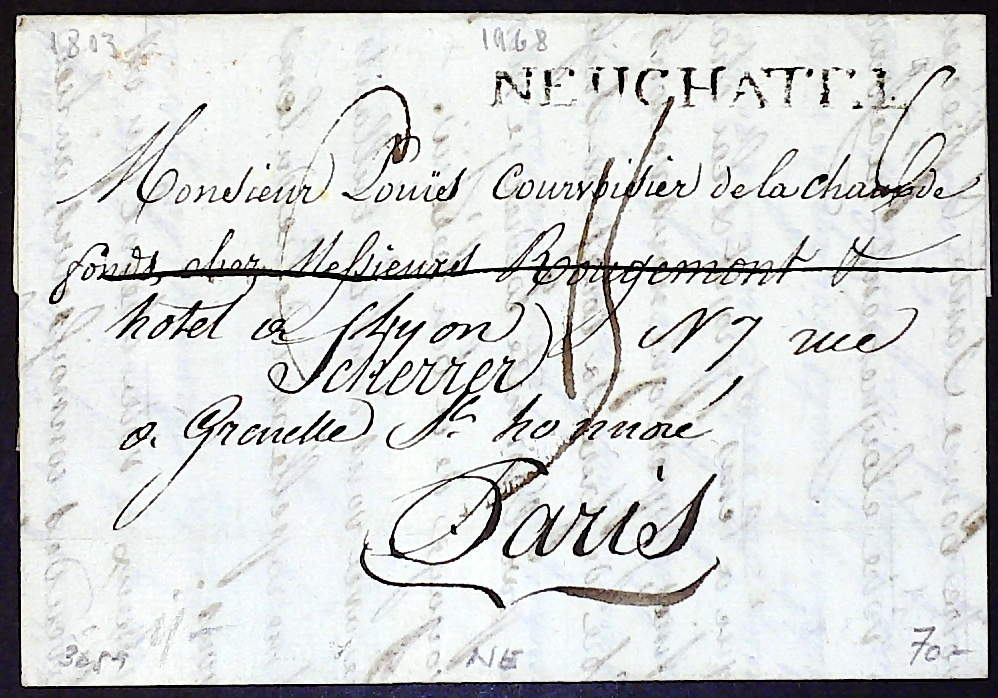 1803 1968
NEUCHATEL
Monsieur Louïs Courvoisier de la chaude
fonds, chez Messieurs Rougemont &
hotel a Lyon N 7 rue
Scherrer
a Grenelle St. honnoré
Paris
NE 70-